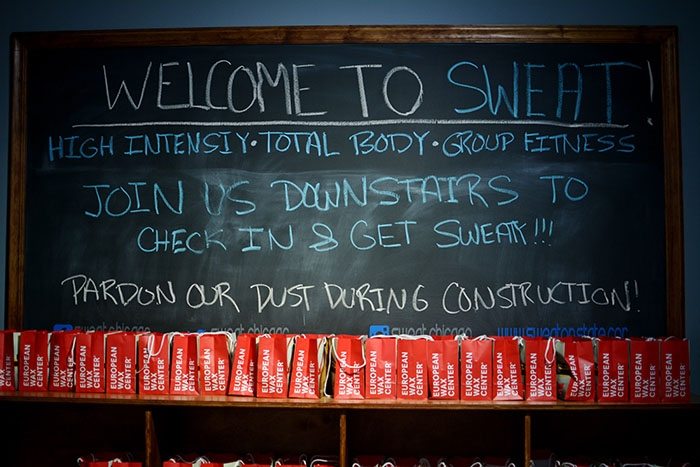 WELCOME TO SWEAT!
HIGH INTENSIY·TOTAL BODY·GROUP FITNESS
JOIN US DOWNSTAIRS TO
CHECK IN & GET SWEATY!!!
PARDON OUR DUST DURING CONSTRUCTION!
sweat chicago sweat.chicago sweat chicago www.sweatonstate.com
WAX CENTER
EUROPEAN WAX CENTER
EUROPEAN WAX CENTER
EUROPEAN WAX CENTER
EUROPEAN WAX CENTER
EUROPEAN WAX CENTER
EUROPEAN WAX CENTER
EUROPEAN WAX CENTER
EUROPEAN WAX CENTER
EUROPEAN WAX CENTER
EUROPEAN WAX CENTER
EUROPEAN WAX CENTER
EUROPEAN WAX CENTER
EUROPEAN WAX CENTER
EUROPEAN WAX CENTER
EUROPEAN WAX CENTER
EUROPEAN WAX CENTER
EUROPEAN WAX CENTER
EUROPEAN WAX CENTER
EUROPEAN WAX CENTER
EUROPEAN WAX CENTER
EUROPEAN WAX CENTER